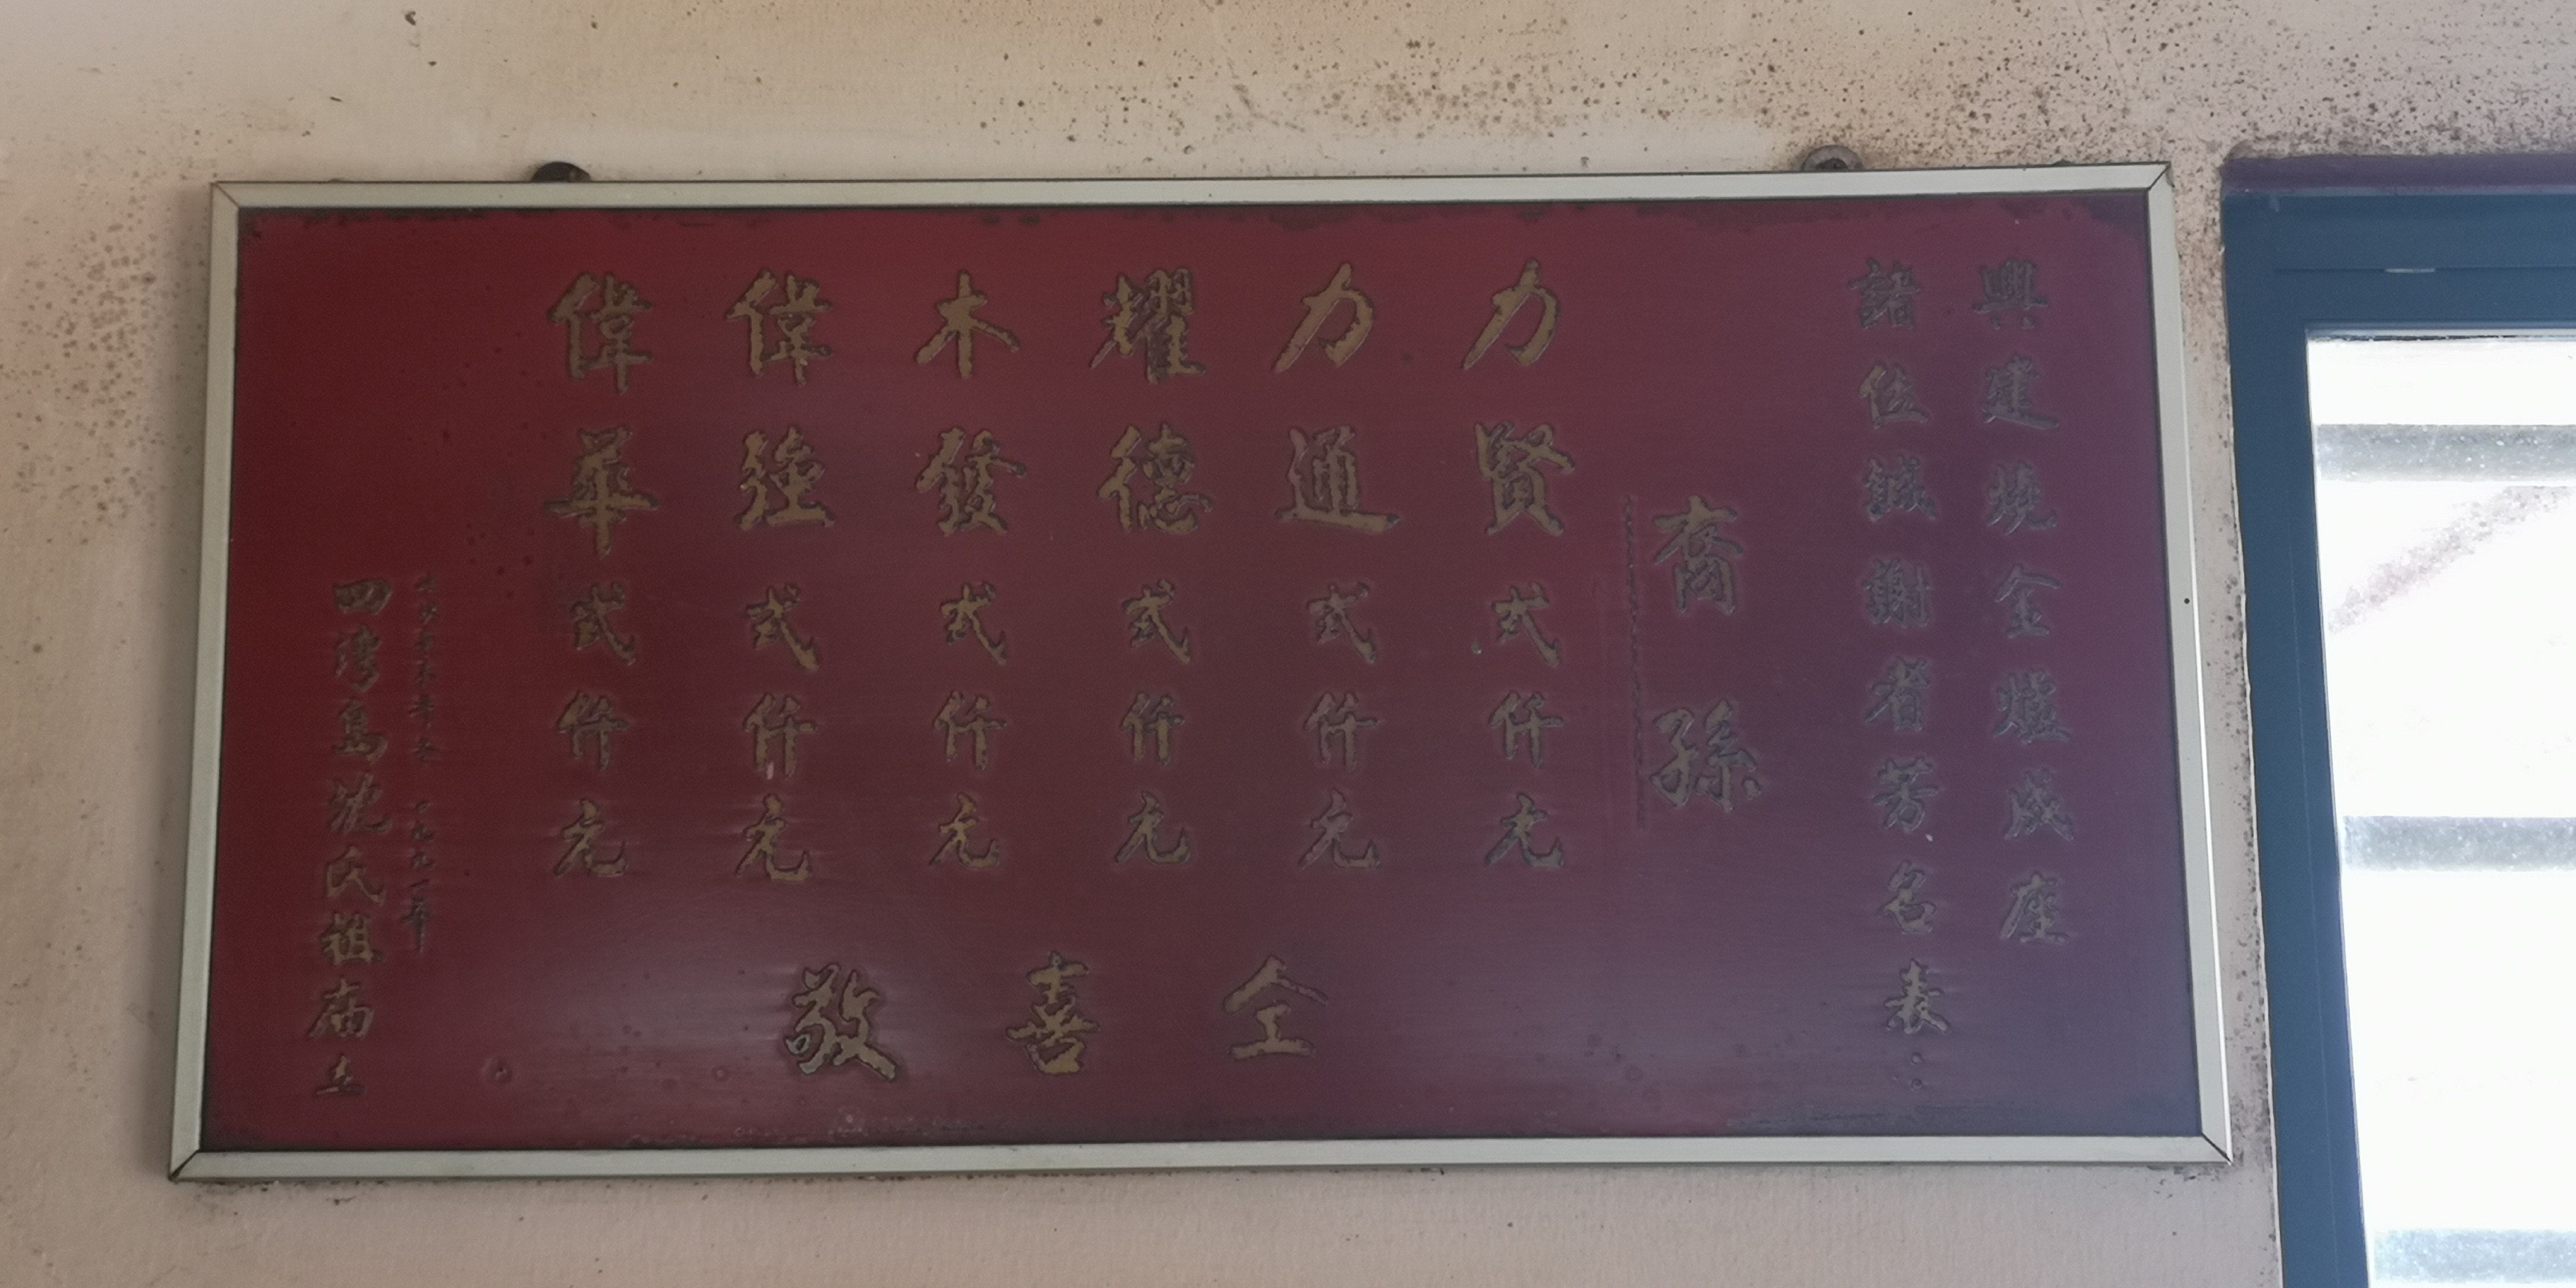 興建燒金爐成座
諸位誠謝者芳名表：
裔孫
力賢弍仟元
力通弍仟元
耀德弍仟元
木發弍仟元
偉強弍仟元
偉華弍仟元
仝喜敬
一九九一年
四灣島沈氏祖廟立